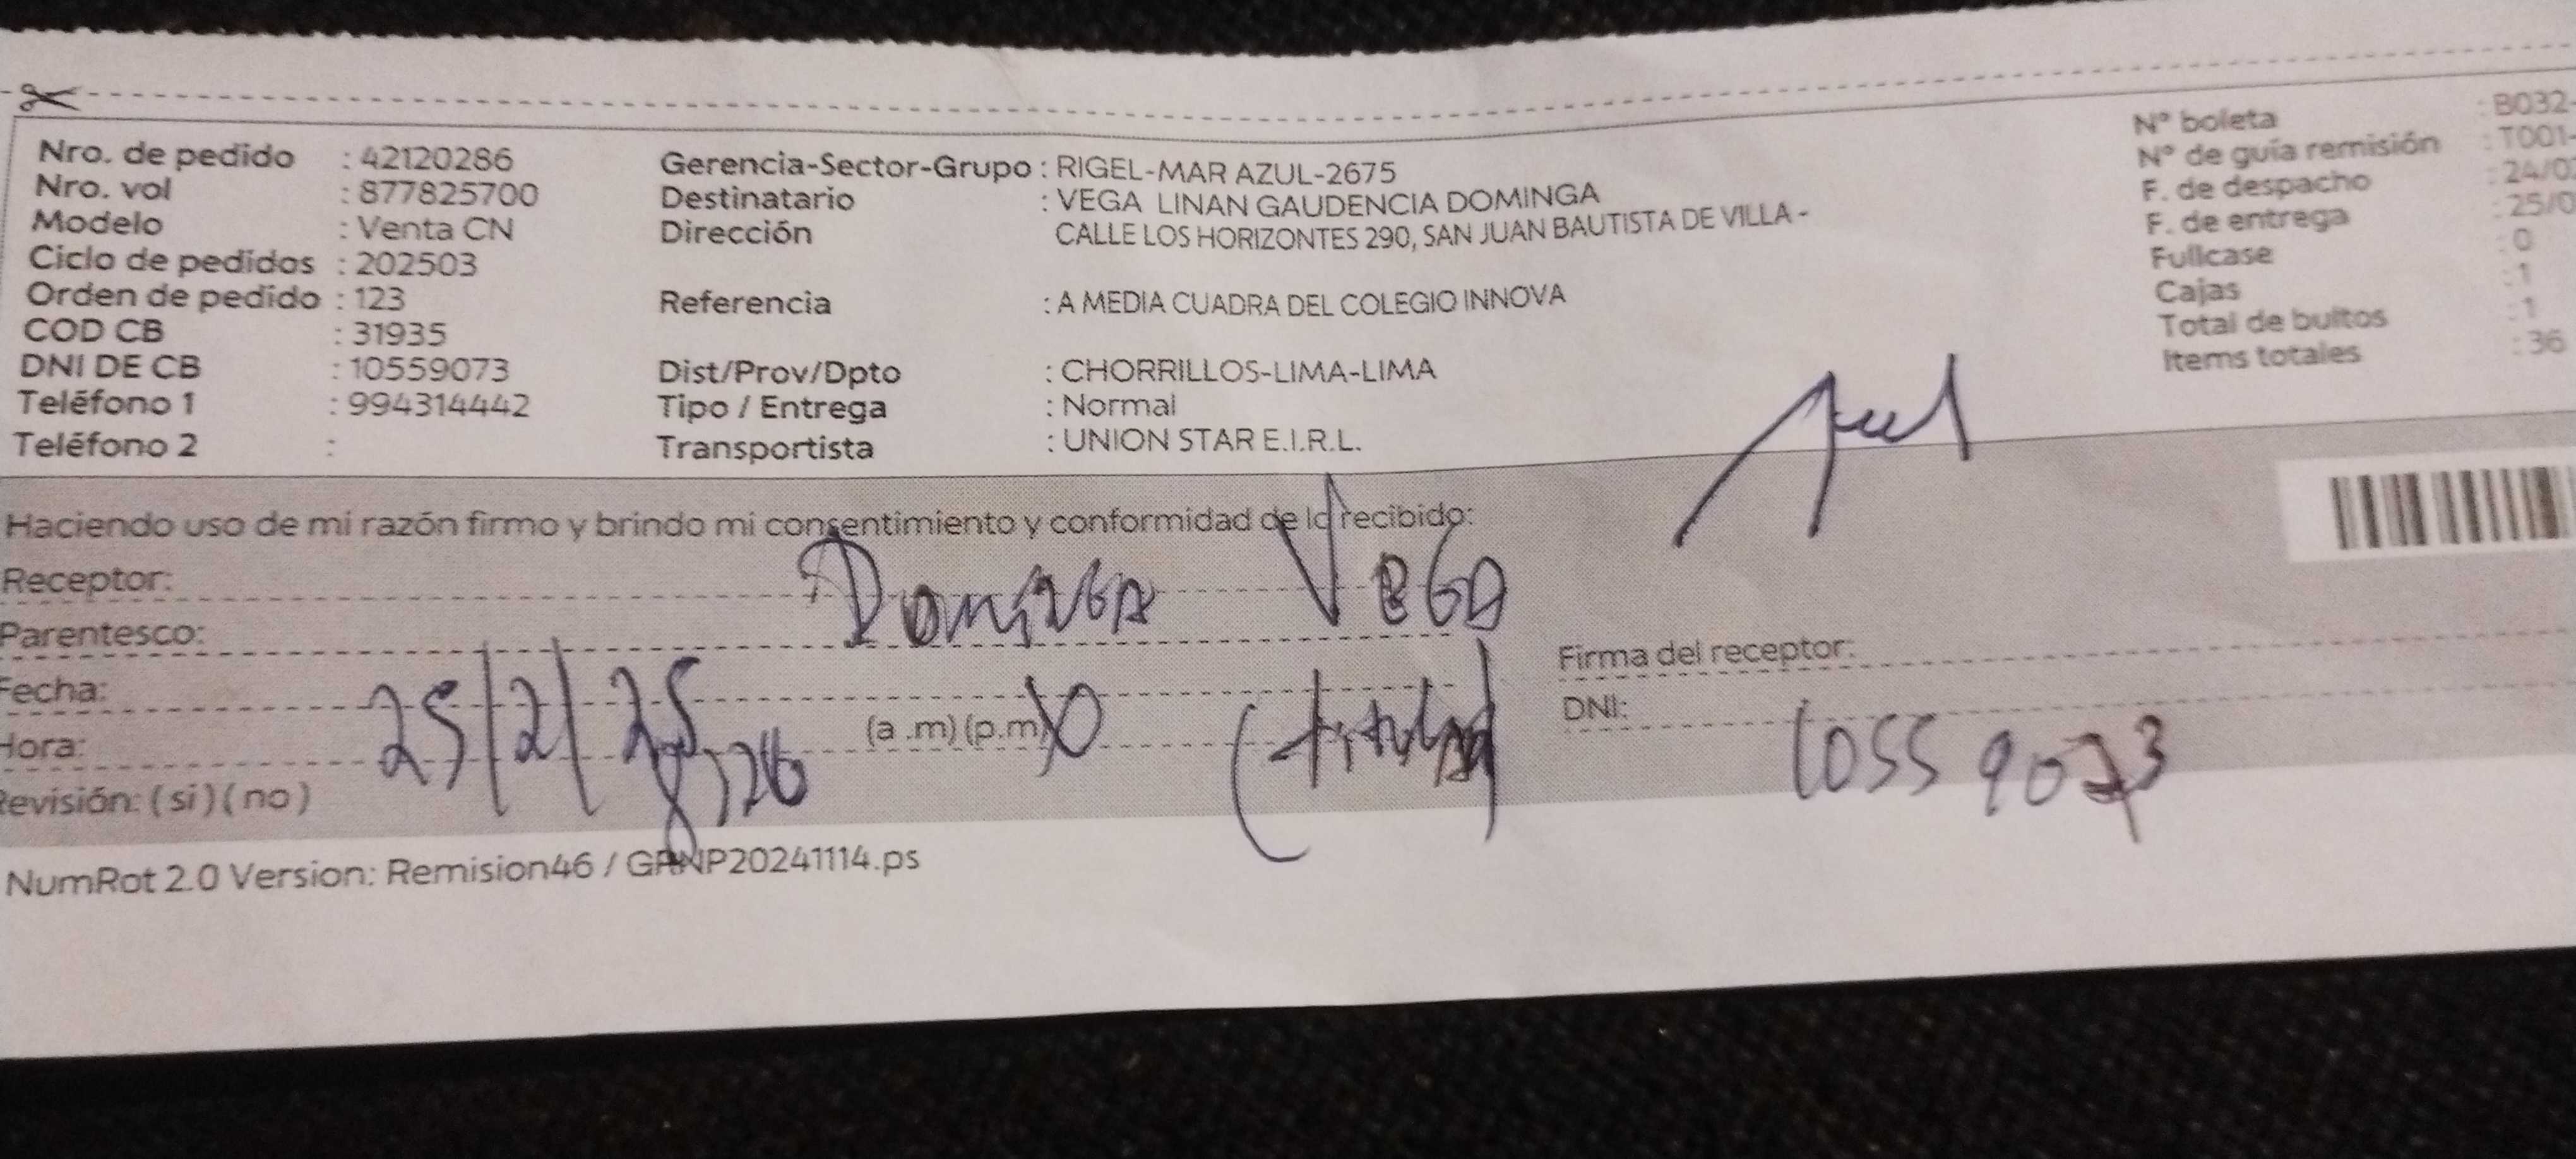 Nro. de pedido : 42120286
Nro. vol : 877825700
Modelo : Venta CN
Ciclo de pedidos : 202503
Orden de pedido : 123
COD CB : 31935
DNI DE CB : 10559073
Teléfono 1 : 994314442
Teléfono 2 :
Gerencia-Sector-Grupo : RIGEL-MAR AZUL-2675
Destinatario : VEGA LINAN GAUDENCIA DOMINGA
Dirección : CALLE LOS HORIZONTES 290, SAN JUAN BAUTISTA DE VILLA -
Referencia : A MEDIA CUADRA DEL COLEGIO INNOVA
Dist/Prov/Dpto : CHORRILLOS-LIMA-LIMA
Tipo / Entrega : Normal
Transportista : UNION STAR E.I.R.L.
N° boleta : B032-
N° de guía remisión : T001-
F. de despacho : 24/0
F. de entrega : 25/0
Fullcase : 0
Cajas : 1
Total de bultos : 1
Items totales : 36
Haciendo uso de mi razón firmo y brindo mi consentimiento y conformidad de lo recibido:
Receptor: Dominga Vega
Parentesco:
Fecha: 25/2/25
(titular)
Hora:
(a .m) (p.m)
Revisión: ( si ) ( no )
Firma del receptor:
DNI: 10559073
NumRot 2.0 Version: Remision46 / GRNP20241114.ps